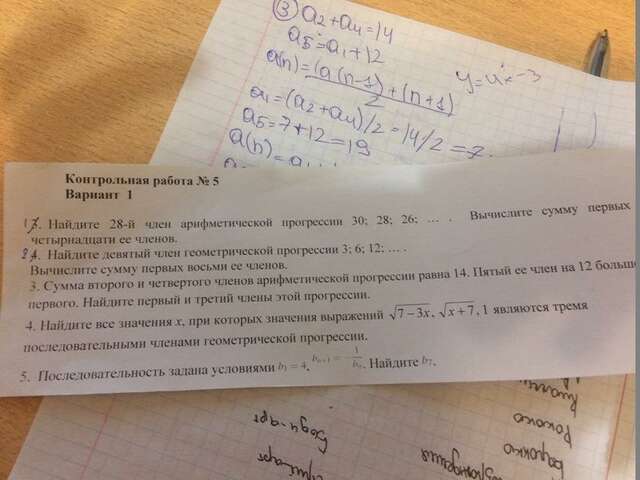 ③ a2+a4=14
a5=a1+12
a(n)=(a(n-1)+(n+1)
2
y=4x-3
a1=(a2+a4)/2=14/2=7
a5=7+12=19
a(n)=
Контрольная работа № 5
Вариант 1
1 3. Найдите 28-й член арифметической прогрессии 30; 28; 26; … . Вычислите сумму первых
четырнадцати ее членов.
2 4. Найдите девятый член геометрической прогрессии 3; 6; 12; … .
Вычислите сумму первых восьми ее членов.
3. Сумма второго и четвертого членов арифметической прогрессии равна 14. Пятый ее член на 12 больше
первого. Найдите первый и третий члены этой прогрессии.
4. Найдите все значения x, при которых значения выражений √7−3x, √x+7, 1 являются тремя
последовательными членами геометрической прогрессии.
5. Последовательность задана условиями b1 = 4, bn+1 = −1/bn. Найдите b7.
Рококо
Барокко
Боди-арт